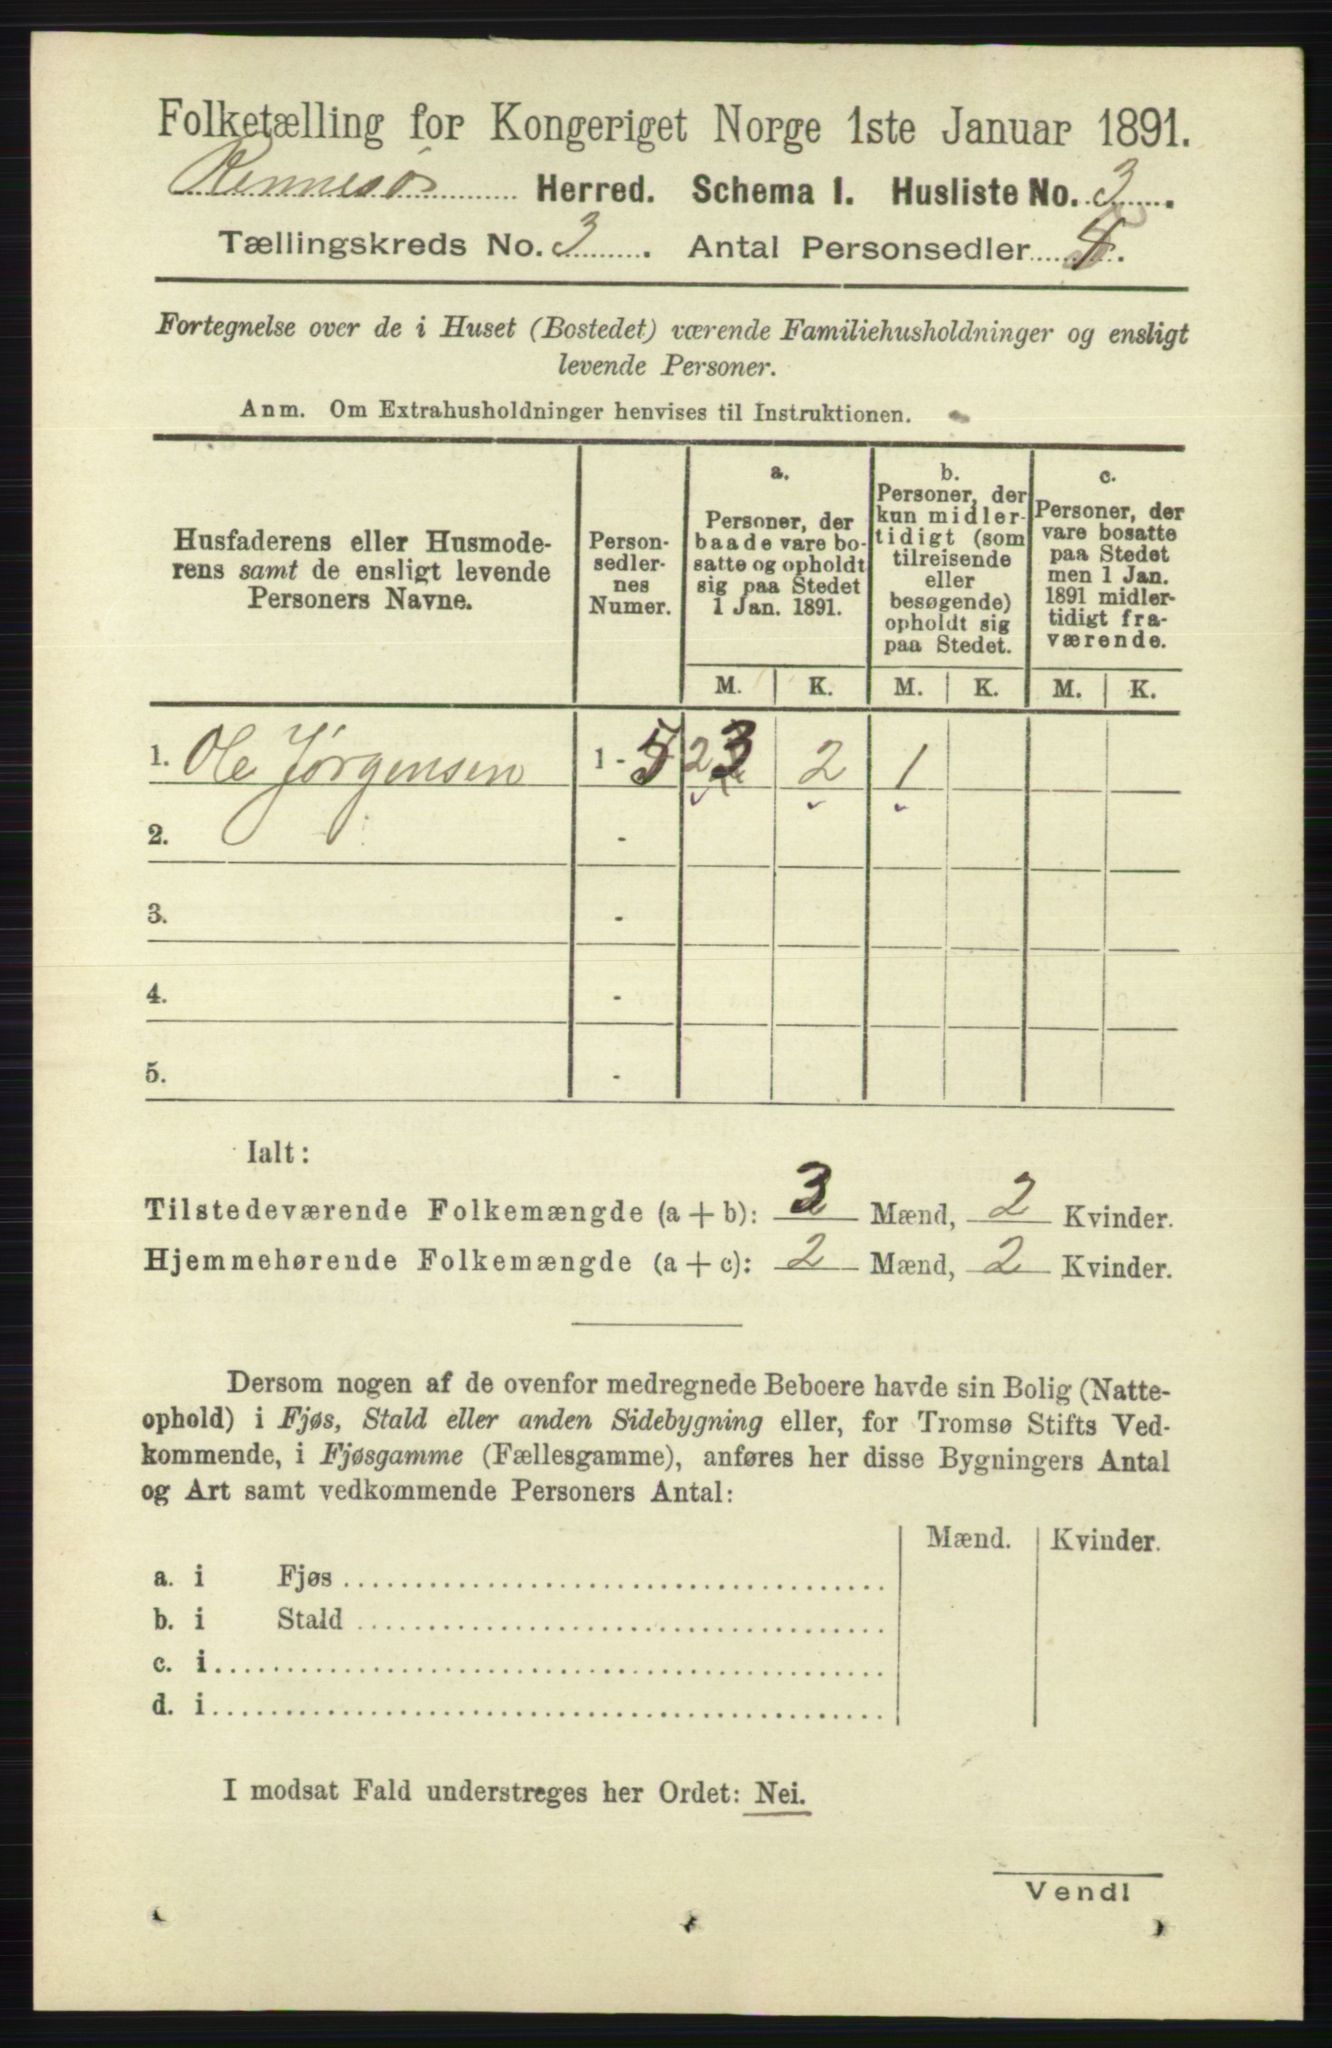 Folketælling for Kongeriget Norge 1ste Januar 1891.
Rennesø Herred. Schema 1. Husliste No. 3.
Tællingskreds No. 3. Antal Personsedler 5.
Fortegnelse over de i Huset (Bostedet) værende Familiehusholdninger og ensligt
levende Personer.
Anm. Om Extrahusholdninger henvises til Instruktionen.
Husfaderens eller Husmode-
rens samt de ensligt levende
Personers Navne.
Person-
sedler-
nes
Numer.
a.
Personer, der
baade vare bo-
satte og opholdt
sig paa Stedet
1 Jan. 1891.
b.
Personer, der
kun midler-
tidigt (som
tilreisende
eller
besøgende)
opholdt sig
paa Stedet.
c.
Personer, der
vare bosatte
paa Stedet
men 1 Jan.
1891 midler-
tidigt fra-
værende.
M. K. M. K. M. K.
1. Ole Jørgensen 1 - 5 2 3 2 1
2. -
3. -
4. -
5. -
Ialt:
Tilstedeværende Folkemængde (a + b): 3 Mænd, 2 Kvinder.
Hjemmehørende Folkemængde (a + c): 2 Mænd, 2 Kvinder.
Dersom nogen af de ovenfor medregnede Beboere havde sin Bolig (Natte-
ophold) i Fjøs, Stald eller anden Sidebygning eller, for Tromsø Stifts Ved-
kommende, i Fjøsgamme (Fællesgamme), anføres her disse Bygningers Antal
og Art samt vedkommende Personers Antal:
Mænd. Kvinder.
a. i Fjøs
b. i Stald
c. i
d. i
I modsat Fald understreges her Ordet: Nei.
Vend!